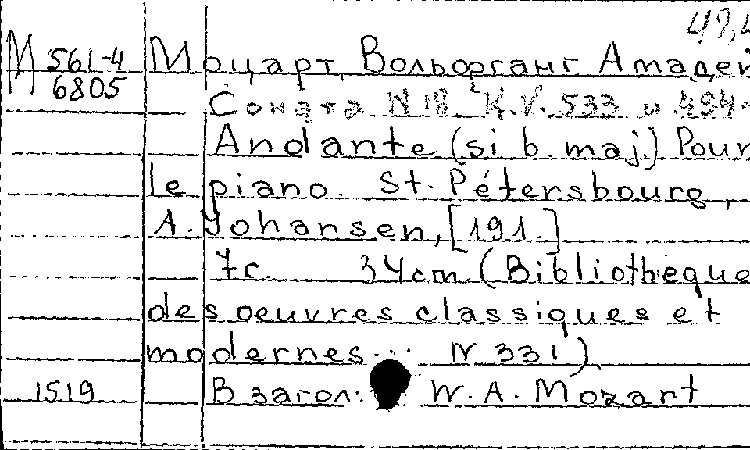 49,
М 561-4 Моцарт, Вольфганг Амадей
6805
Соната N 18 K.V. 533 и 494.
Andante (si b. maj.) Pour
le piano. St. Pétersbourg,
A. Johansen, [191.]
7с. 34cm (Bibliotheque
des oeuvres classiques et
modernes... N 331)
1519 В загол.: W. A. Mozart